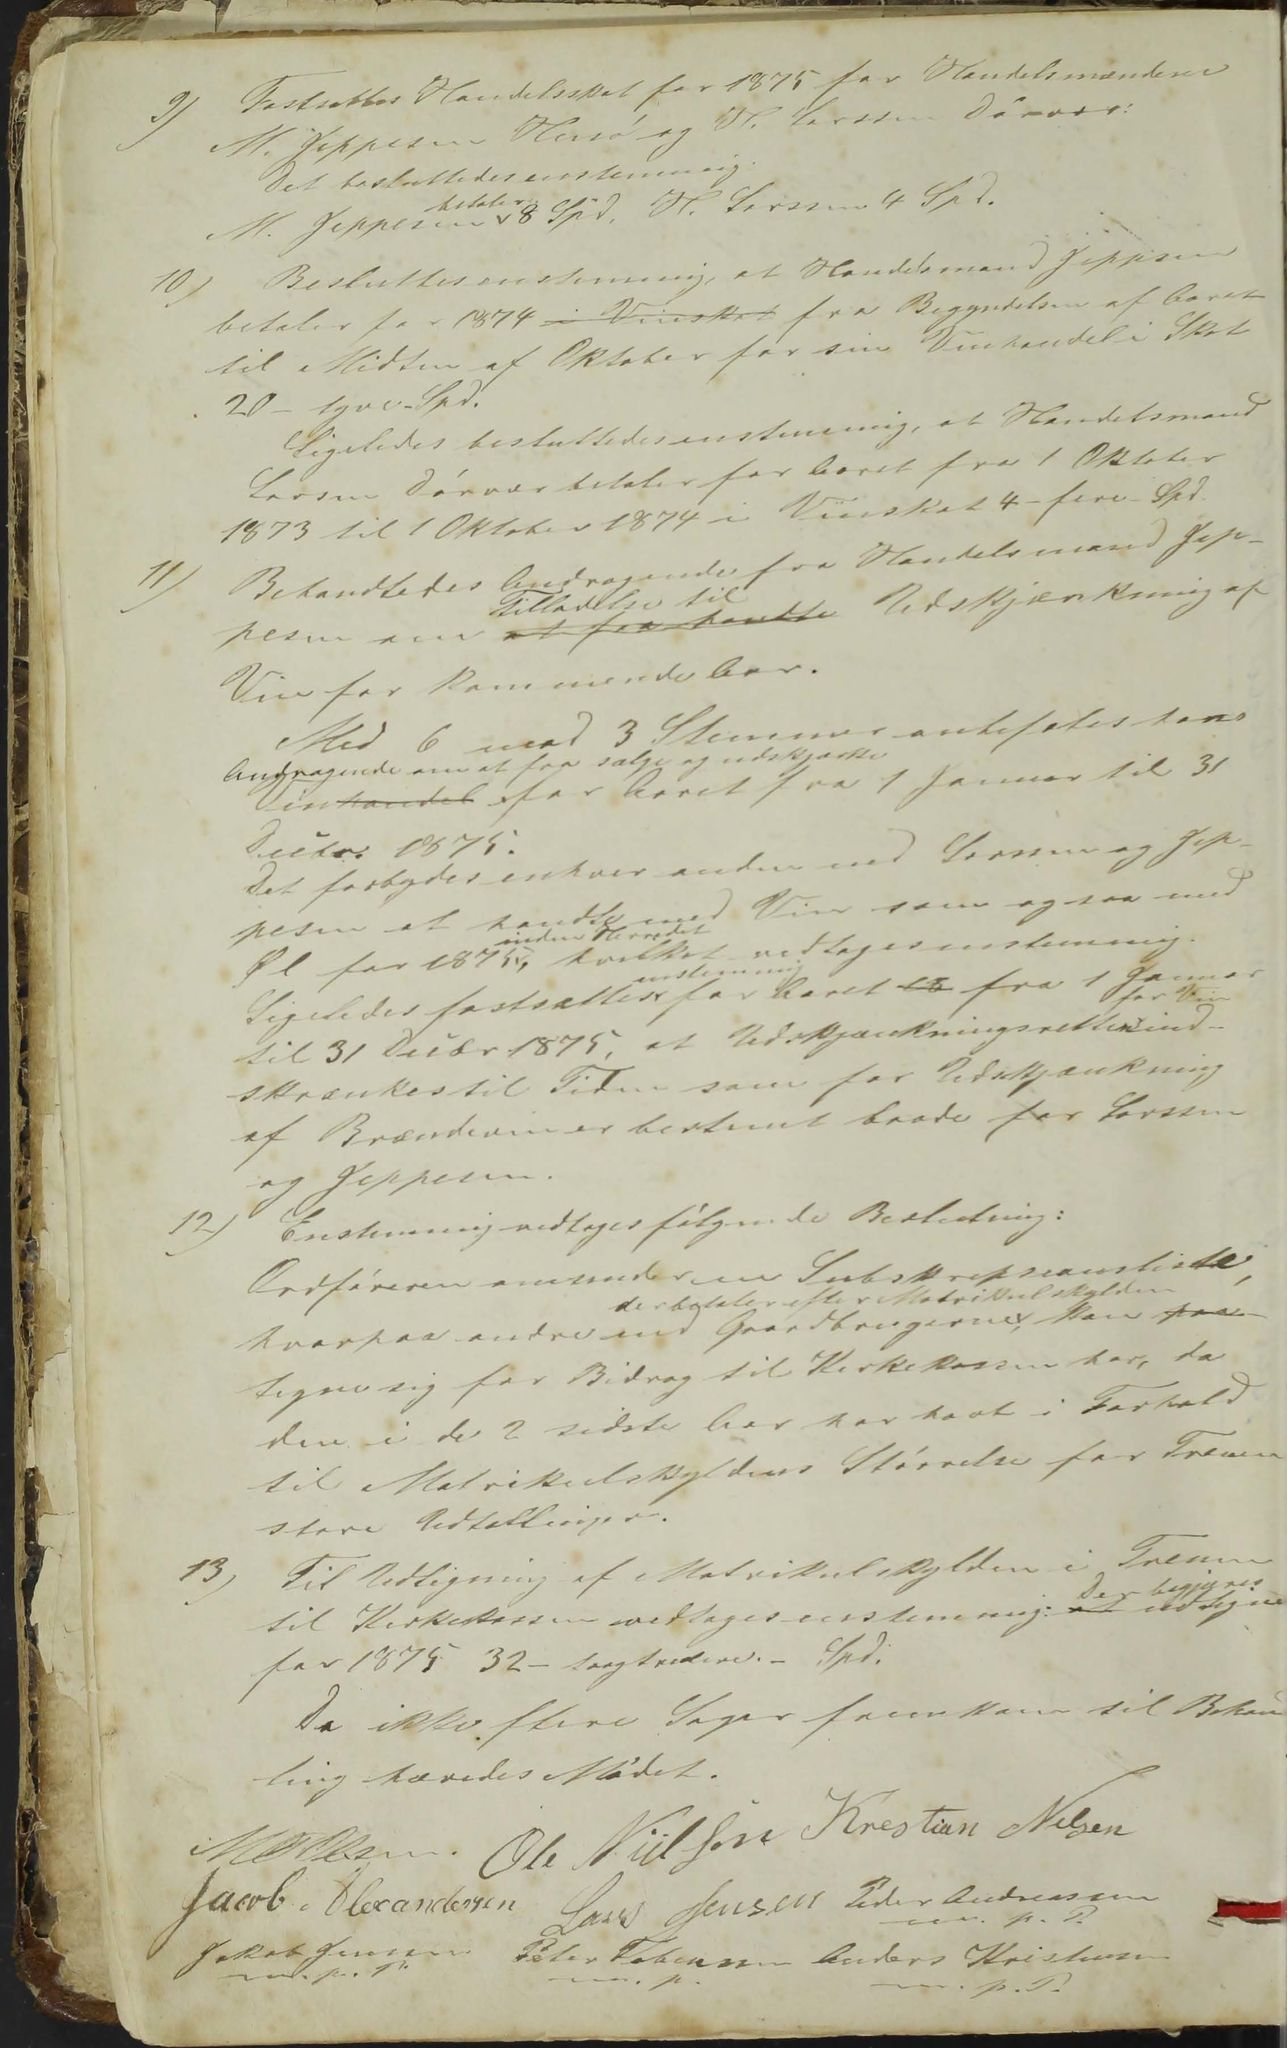 9) Fastsattes Handelsskat for 1875 for Handelsmændene
M. Jeppesen Havsö og H. Larssen Dönvær:
Det besluttedes enstemmig:
M. Jeppesen betaler 8 Spd, H. Larssen 4 Spd.
10) Besluttes enstemmig, at Handelsmand Jeppesen
betaler for 1874 i Vinskat fra Begyndelsen af Aaret
til Midten af Oktober for sin Vinhandel i Skat
20 - tyve - Spd.
Ligeledes besluttedes enstemmig, at Handelsmand
Larsen Dönvær betaler for Aaret fra 1 Oktober
1873 til 1 Oktober 1874 i Vinskat 4 - fire - Spd.
11) Behandledes Andragende fra Handelsmand Jep-
pesen om at faa handle Tilladelse til Udskjænkning af
Vin for kommende Aar.
Med 6 mod 3 Stemmer anbefales hans
Andragende om at faa sælge og udskjænke
Vinhandel for Aaret fra 1 Januar til 31
Decbr. 1875.
Det forbydes enhver anden end Larssen og Jep-
pesen at handle med Vin som ogsaa med
Øl for 1875 inden Herredet, hvilket vedtages enstemmig.
Ligeledes fastsættes enstemmig for Aaret 18 fra 1 Januar
til 31 Decbr 1875, at Udskjænkningsretten for Vin ind-
skrænkes til Tiden som for Udskjænkning
af Brændevin er bestemt baade for Larssen
og Jeppesen.
12) Enstemmig vedtages fölgende Beslutning:
Ordföreren omsender en Subskrepsionsliste,
hvorpaa andre end Gaardbrugerne, der betaler efter Matrikulskylden kan paa-
tegne sig for Bidrag til Kirkekassen her, da
den i de 2 sidste Aar har havt i Forhold
til Matrikulskyldens Störrelse for Trænen
store Udtællinger.
13) Til Udligning af Matrikulskylden i Trænen
til Kirkekassen vedtages enstemmig: at Der begjæres udlignet
for 1875 32 - toogtredeve - Spd.
Da ikke flere Sager fremkom til Behand
ling hævedes Mödet.
Ole Niilsön Krestian Nelsen
Jacob Alexandersen Lars Jensen Peder Andreassen
m. p. P.
Jakob Jensen Peter Tobiassen Anders Kristensen
m. p. P. m. p. m. p. P.